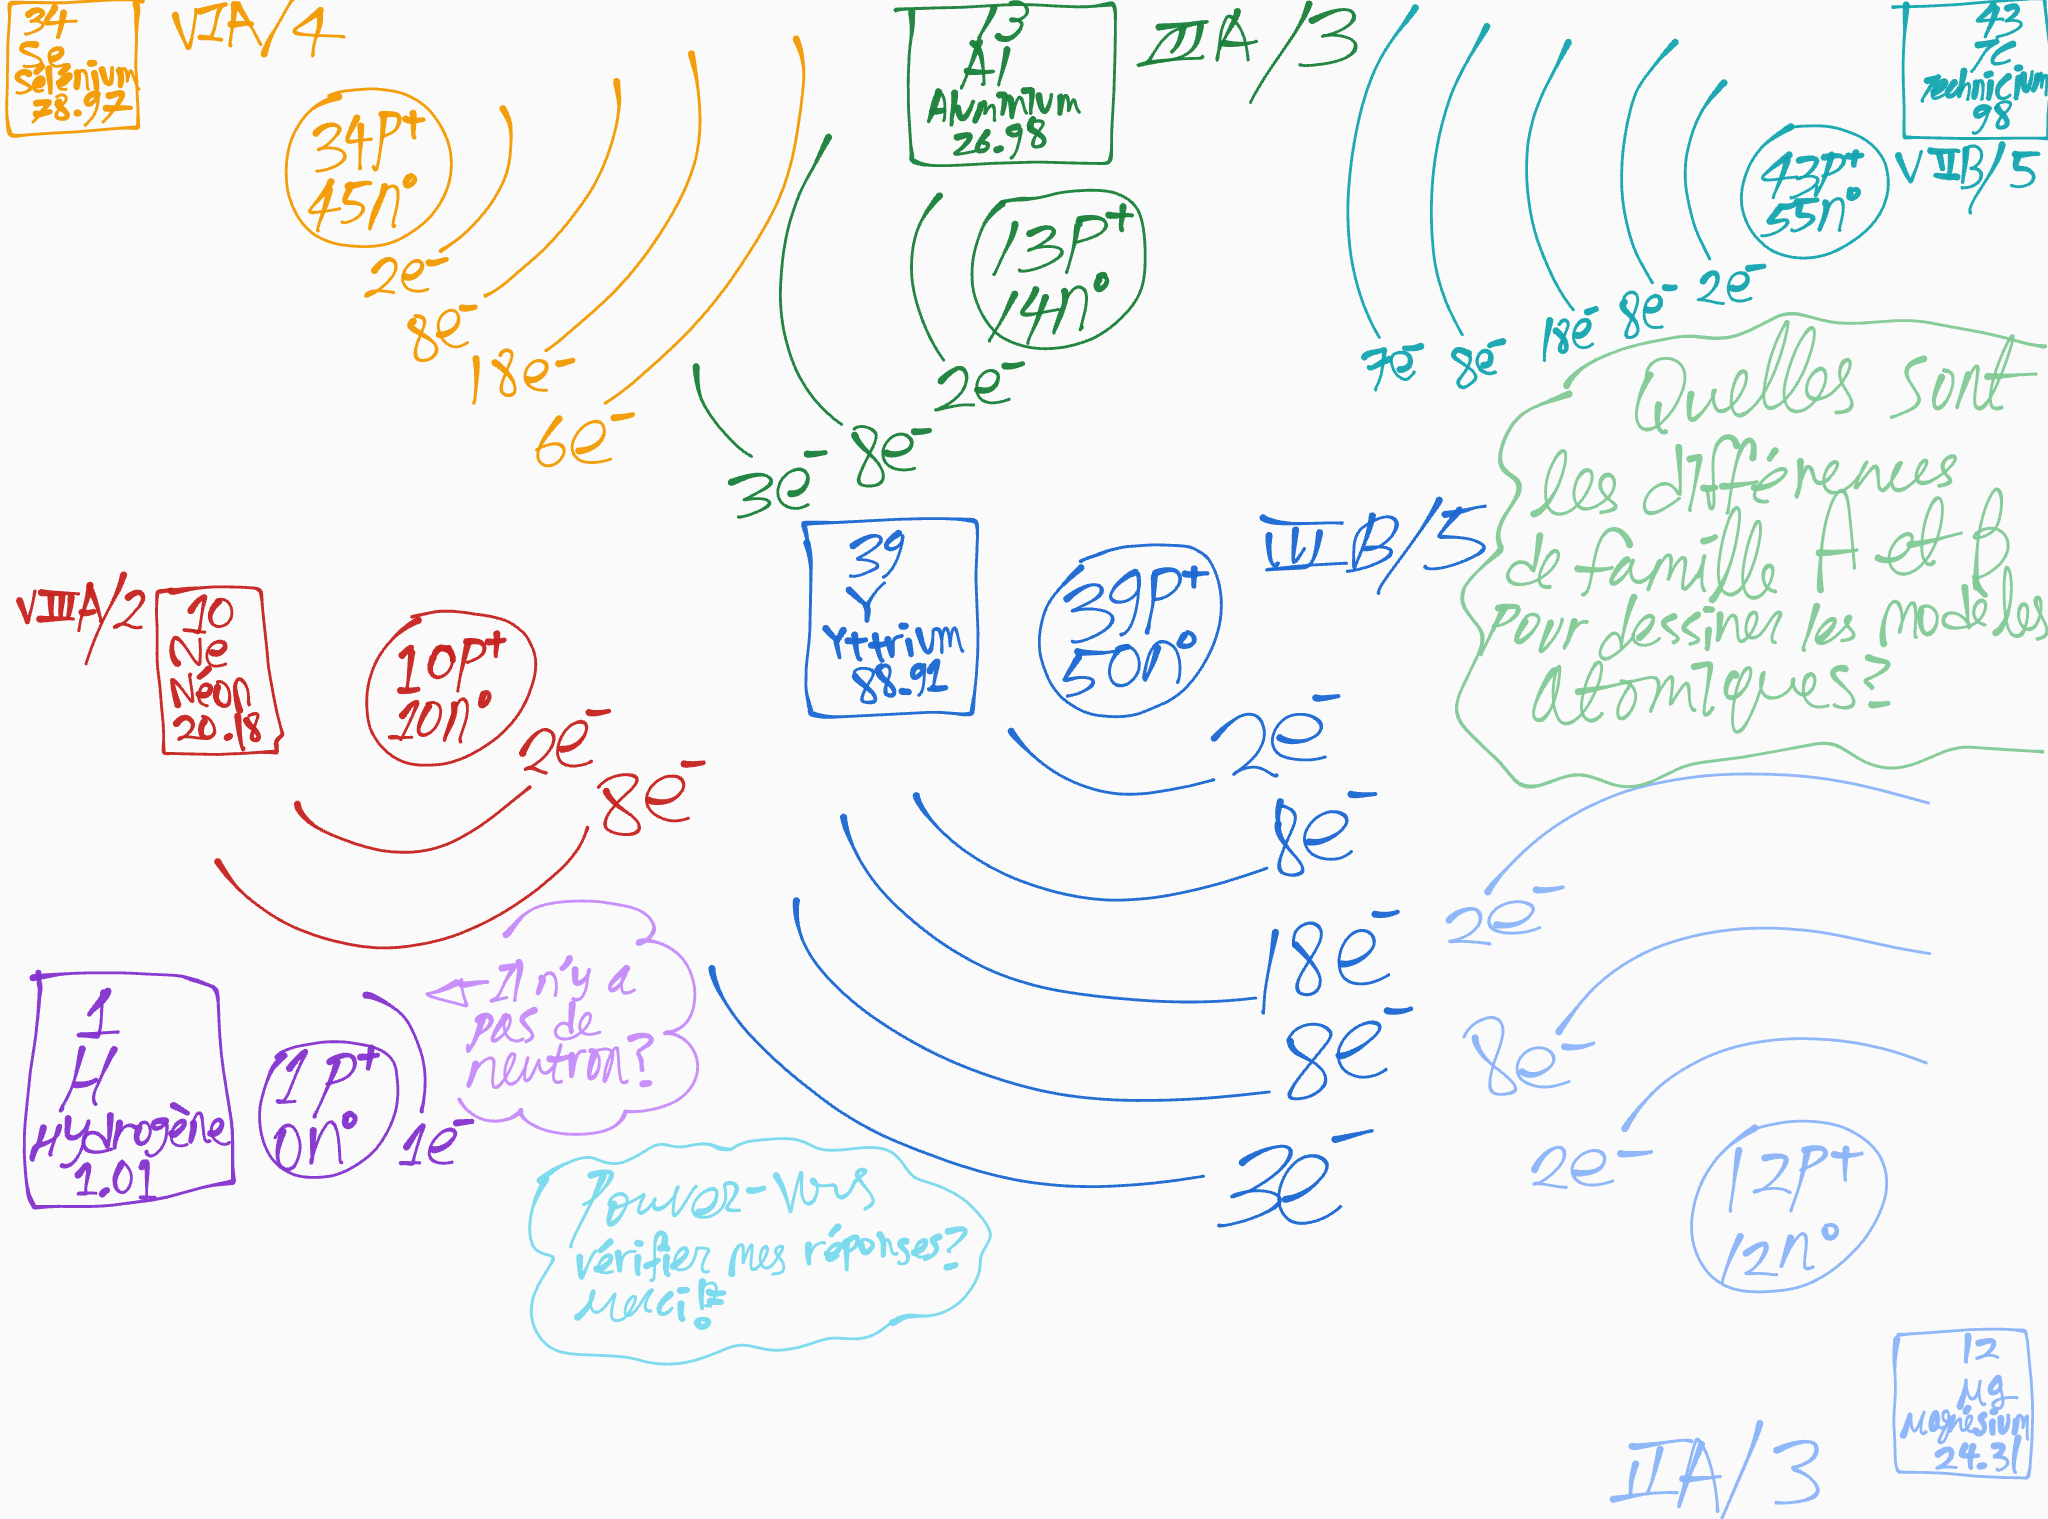 34
Se
Sélénium
78.97
VIA/4
34P+
45n°
2e-
8e-
18e-
6e-
13
Al
Aluminium
26.98
IIIA/3
13P+
14n°
2e-
8e-
3e-
43
Tc
Technicium
98
VIIB/5
43P+
55n°
7e- 8e- 18e- 8e- 2e-
Quelles sont
les différences
de famille A et B
pour dessiner les modèles
atomiques?
VIIIA/2
10
Ne
Néon
20.18
10P+
10n°
2e-
8e-
39
Y
Yttrium
88.91
IIIB/5
39P+
50n°
2e-
8e-
18e-
8e-
3e-
1
H
Hydrogène
1.01
1P+
0n°
1e-
Il n'y a
pas de
neutron?
Pouvez-vous
vérifier mes réponses?
Merci!
2e-
8e-
2e-
12P+
12n°
12
Mg
Magnésium
24.31
IIA/3